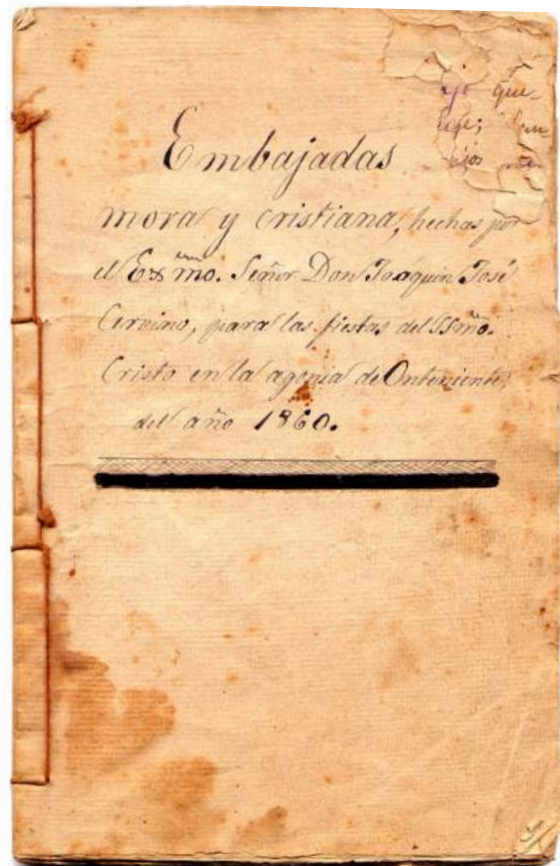 Embajadas
mora y cristiana, hechas por
el Exmo. Señor Don Joaquin José
Cervino, para las fiestas del SSmo.
Cristo en la agonia de Onteniente,
del año 1860.